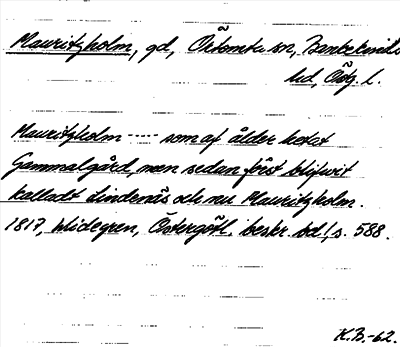 Mauritzholm, gd, Örtomta sn, Bankekinds
hd, Ög l.
Mauritzholm ---- som af ålder hetat
Gammalgård, men sedan först blifwit
kalladt Lindenäs och nu Mauritzholm.
1817, Widegren, Östergötl. beskr. bd 1 s. 588.
K.B.-62.